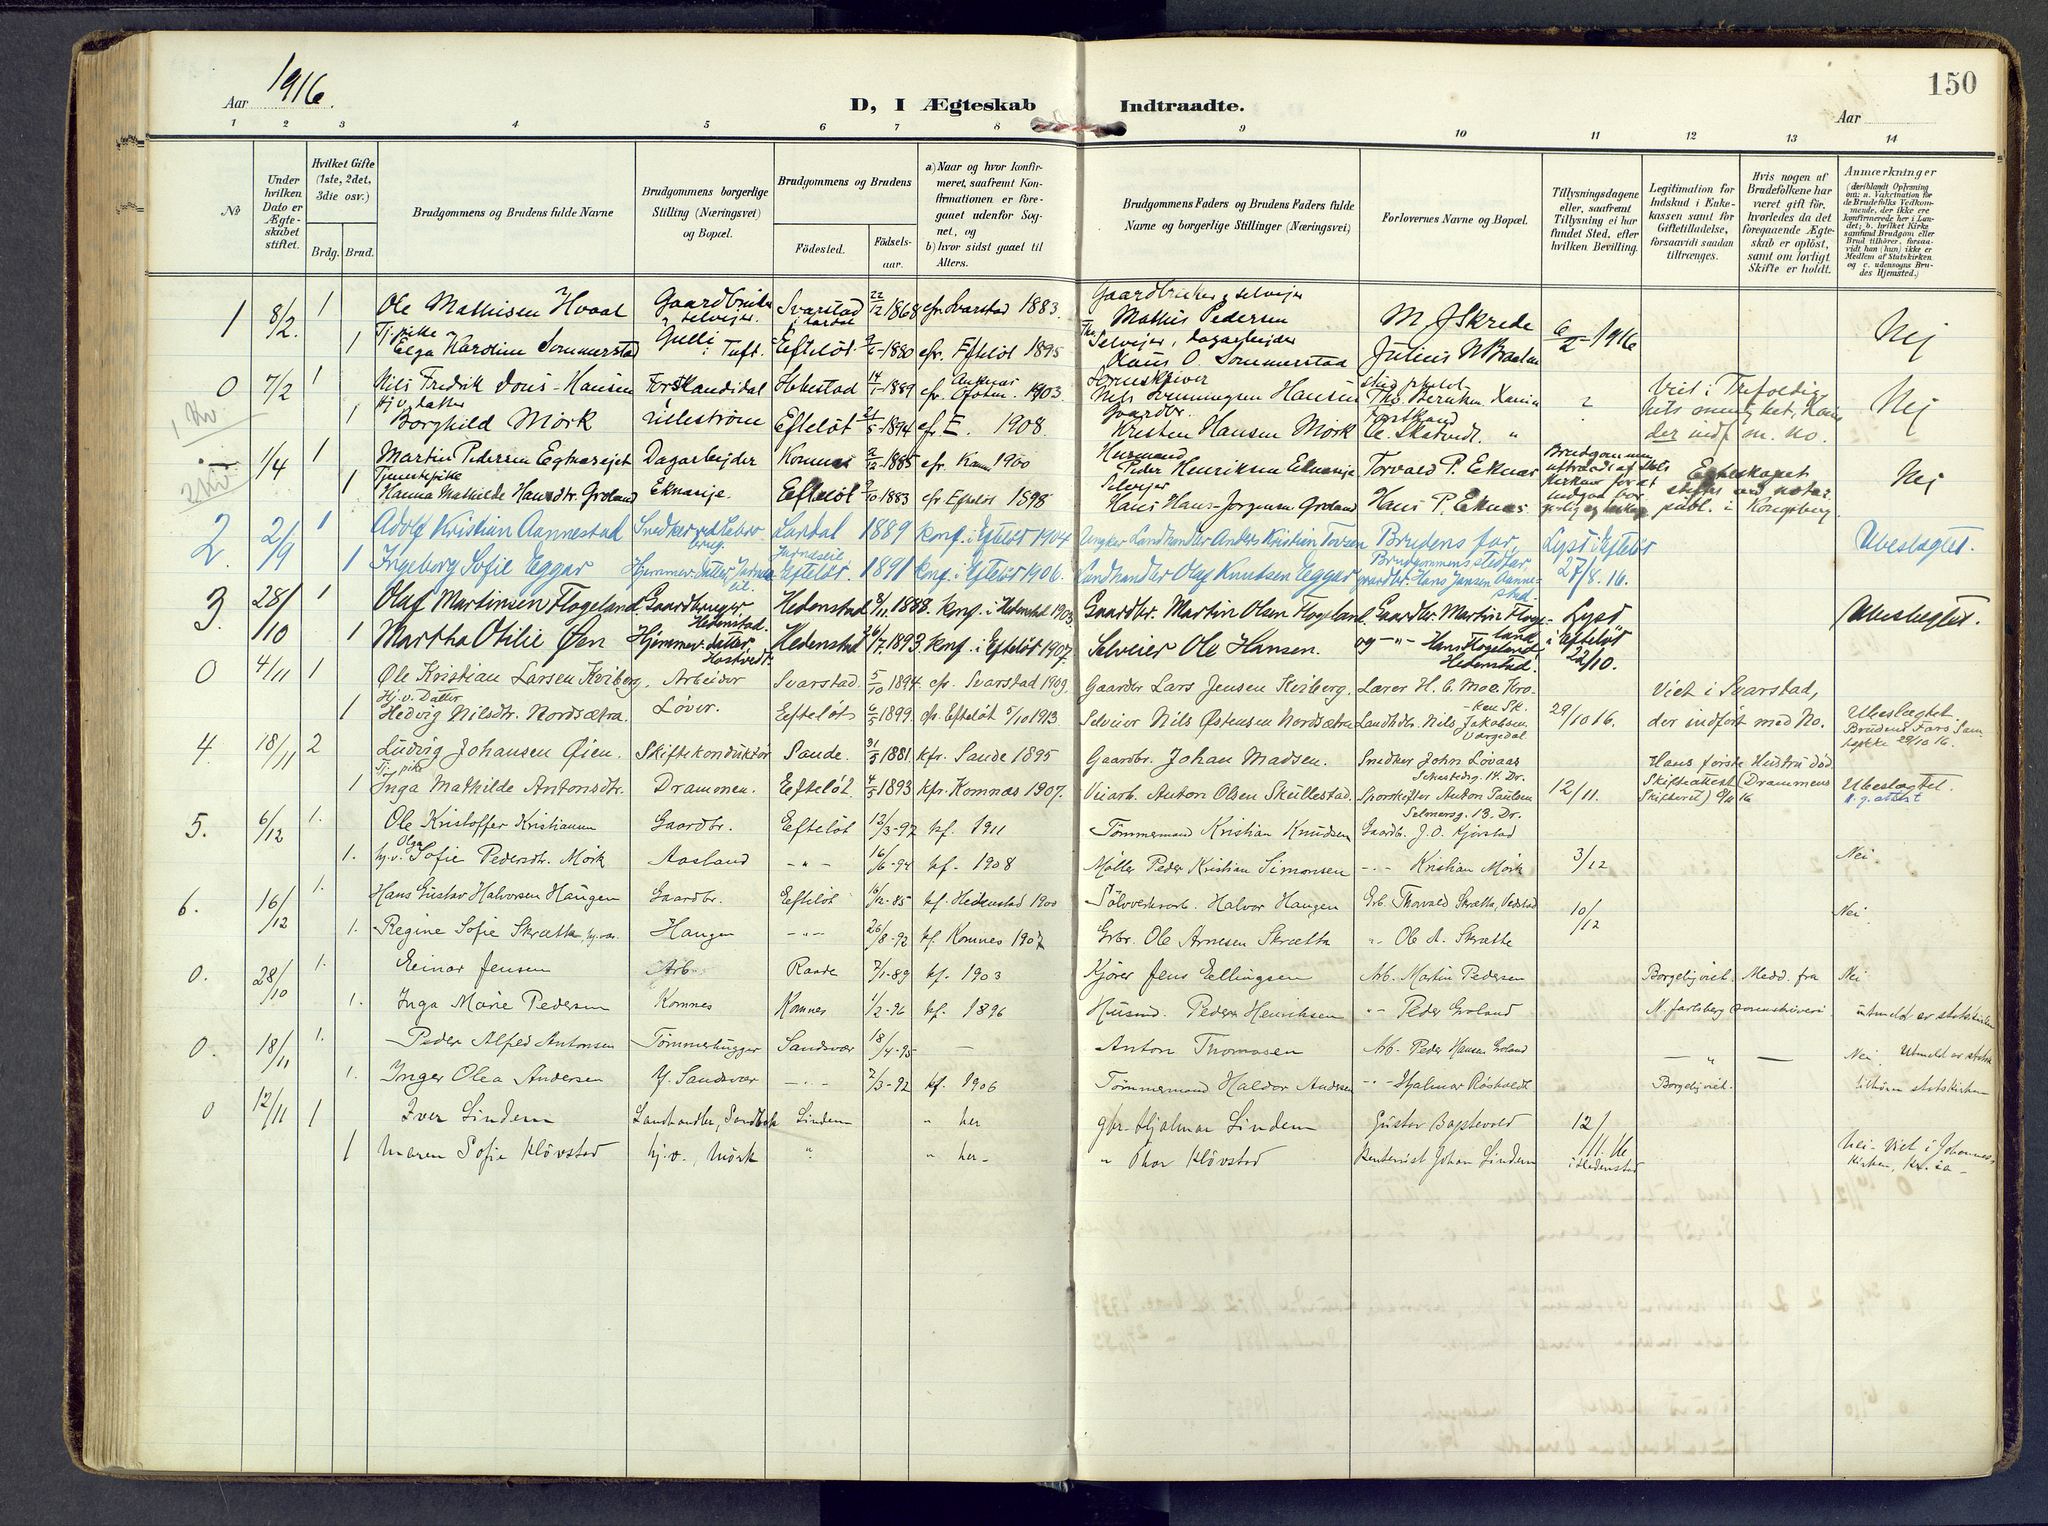 Aar 1916.
D, I Ægteskab Indtraadte.
150
Aar
1 2 3 4 5 6 7 8 9 10 11 12 13 14
No
Under hvilken Dato er Ægteskabet stiftet.
Hvilket Gifte (1ste, 2det, 3die osv.)
Brdg. Brud.
Brudgommens og Brudens fulde Navne
Brudgommens borgerlige Stilling (Næringsvei) og Bopæl.
Brudgommens og Brudens
Fødested. Fødselsaar.
a) Naar og hvor konfirmeret, saafremt Konfirmationen er foregaaet udenfor Sognet, og
b) hvor sidst gaaet til Alters.
Brudgommens Faders og Brudens Faders fulde Navne og borgerlige Stillinger (Næringsvei)
Forlovernes Navne og Bopæl.
Tillysningsdagene eller, saafremt Tillysning ei har fundet Sted, efter hvilken Bevilling.
Legitimation for Indskud i Enkekassen samt for Giftetilladelse, forsaavidt saadan tiltrænges.
Hvis nogen af Brudefolkene har været gift før, hvorledes da det foregaaende Ægteskab er opløst, samt om lovligt Skifte er holdt.
Anmærkninger
(deriblandt Oplysning om: a. Vakcination for de Brudefolks Vedkommende, der ikke ere konfirmerede her i Landet; b. hvilken Kirke samfund Brudgom eller Brud tilhører, forsaavidt han (hun) ikke er Medlem af Statskirken og c. udensogns Brudes Hjemsted.)
1 8/2 1 Ole Mathisen Hvaal Gaardbruker & selvejer. Svarstad i Lardal 22/12 1868 cfr. Svarstad 1883. Gaardbruker & selvejer Mathis Pedersen M. J. Skrede 6/2 1916 Nej
1 Tj.pike Elga Karoline Sommerstad Gulli i Tuft. Efteløt 1880 cfr. Efteløt 1895 Selvejer, Dagarbejder Olaus O. Sommerstad Julius N. Braaten
0 7/2 1 Nils Fredrik Hansen Forstkandidat 14/1 1889 cfr. Ofoten 1903. Nils Henningsen Hansen Viet i Trefoldighets menighet, Nej
1 Hj.v. datter Borghild Mørk Lillestrøm Efteløt 1894 cfr. E. 1908. Gaardbr. Kristen Hansen Mørk der indf. m. no.
1 kv
1/4 1 Martin Pedersen Dagarbejder Komnes 2/12 1885 cfr. Komn 1900 Husmand Peder Henriksen Eknæseje Torvald P. Eknæs Brudgommen Egteskapet Nej
2 kv
1 Tjenestepike Hanna Mathilde Hansdtr. Groland Eknæseje. Efteløt 2/10 1883 cfr. Efteløt 1898 Selvejer Hans Hans-Jørgensen Groland Hans P. Eknæs stiftet ved notar. publ. i Kongsberg
2. 2/9 1 Adolf Kristian Aannestad Snedker Lardal 1889 konf. i Efteløt 1904 Landhandler Anders Kristian Brudens far, Lyst i Efteløt Ubeslægtet.
2. 1 Ingeborg Sofie Eggar Hjemmev. datter, Efteløt. 1891 konf. i Efteløt 1906. Landhandler Olaf Knutsen Eggar Brudgommens stedfar, gaardbr. Hans Jansen Aannestad. 27/8. 16.
3. 28/10 1 Olaf Martinsen Flogeland. Gaardbruger, Hedenstad. Hedenstad konf. i Hedenstad 1903. Gaardbr. Martin Olsen Flogeland. Gaardbr. Martin Flogeland Lyst Ubeslægtet.
1 Martha Otilie Øen Hjemmev. datter, Hostvedt. Hedenstad 26/7. 1893. konf. i Efteløt 1907. Selveier Ole Hansen. og -"- Hans Flogeland Hedenstad. i Efteløt 22/10.
0 4/11 1 Ole Kristian Larsen Kviberg. Arbeider Svarstad. 5/10 1894. cfr. Svarstad 1909. Gaardbr. Lars Jensen Kviberg. Lærer H. C. Moe. Kroken Sk. Viet i Svarstad,
1 Hj.v. Datter Hedvig Nilsdtr. Nordsætra. Løver. Efteløt 6/5 1899. cfr. Efteløt 5/10 1913. Selveier Nils Østensen Nordsætra Landhdlr. Nils Jakobsen 29/10 16. der indført med No. Ubeslægtet. Brudens Fars Samtykke 29/10 16.
4. 18/11 2 Ludvig Johansen Øien. Skiftekonduktør Sande. 31/5 1881. kfr. Sande 1895 Gaardbr. Johan Madsen. Snedker John Lovaas Schestedsg. 14. Dr. Hans første Hustru død
1 Tj.pike Inga Mathilde Antonsdtr. Drammen. Efteløt. 4/5 1893 kfr. Komnes 1907. Veiarb. Anton Olsen Skullestad. Sporskifter Anton Paulsen Selmersg. 13. Dr. 12/11. Skifteattest (Drammens Skifteret) 16 Ubeslægtet.
5. 6/12 1. Ole Kristoffer Kristiansen Gaardbr. Efteløt 12/3-92 kf. 1911 Tømmermand Kristian Knudsen Gaardb. J. O. Kjørstad
1. hj.v. Olga Sofie Pedersdtr. Mørk Aasland -"- 16/6-94 kf. 1908 Møller Peder Kristian Simonsen -"- Kristian Mørk 3/12 Nei.
6. 16/12 1. Hans Gustav Halvorsen Haugen Gaardbr. Efteløt 16/12-85 kf. Hedenstad 1900 Sølvverksarb. Halvor Haugen Grb. Thorvald Skrætta, Vedstad 10/12 Nei.
1. Regine Sofie Skrætta, hj.v. Haugen -"- 26/8-92 kf. Komnes 1907 Grbr. Ole Arnesen Skrætta " Ole A. Skrætte
0. 28/10 1. Einar Jensen Arb. Raade 7/1-89 kf. 1903 Kjører Jens Ellingsen Arb. Martin Pedersen Borgerlig viet. Medd. fra Nei
1. Inga Marie Pedersen Komnes Komnes 1/2-96 kf. 1896 Husmd. Peder Henriksen -"- Peder Groland N. Jarlsberg sorenskriveri utmeldt av statskirken
0. 18/11 1. Peder Alfred Antonsen Tømmerhugger Sandsvær 18/4-95 — Anton Thomasen Arb. Peder Hansen Groland — " — Nei Utmeldt av statsk
1. Inger Olea Andersen Y. Sandsvær -"- 2/3-92 kf. 1906 Tømmermand Haldor Andersen -"- Hjalmar Røstvedt Borgerlig viet. tilhører statskirken
0 12/11 1 Iver Lindem Landhandler, Lindem " her gbr. Hjalmar Lindem Gustav 12/11.16
1 Maren Sofie Kløvstad hj.v., Mørk " " her- " Thor Kløvstad Johan Lindem i Hedenstad Nei- Viet i Johannes kirken, Kr.ia-